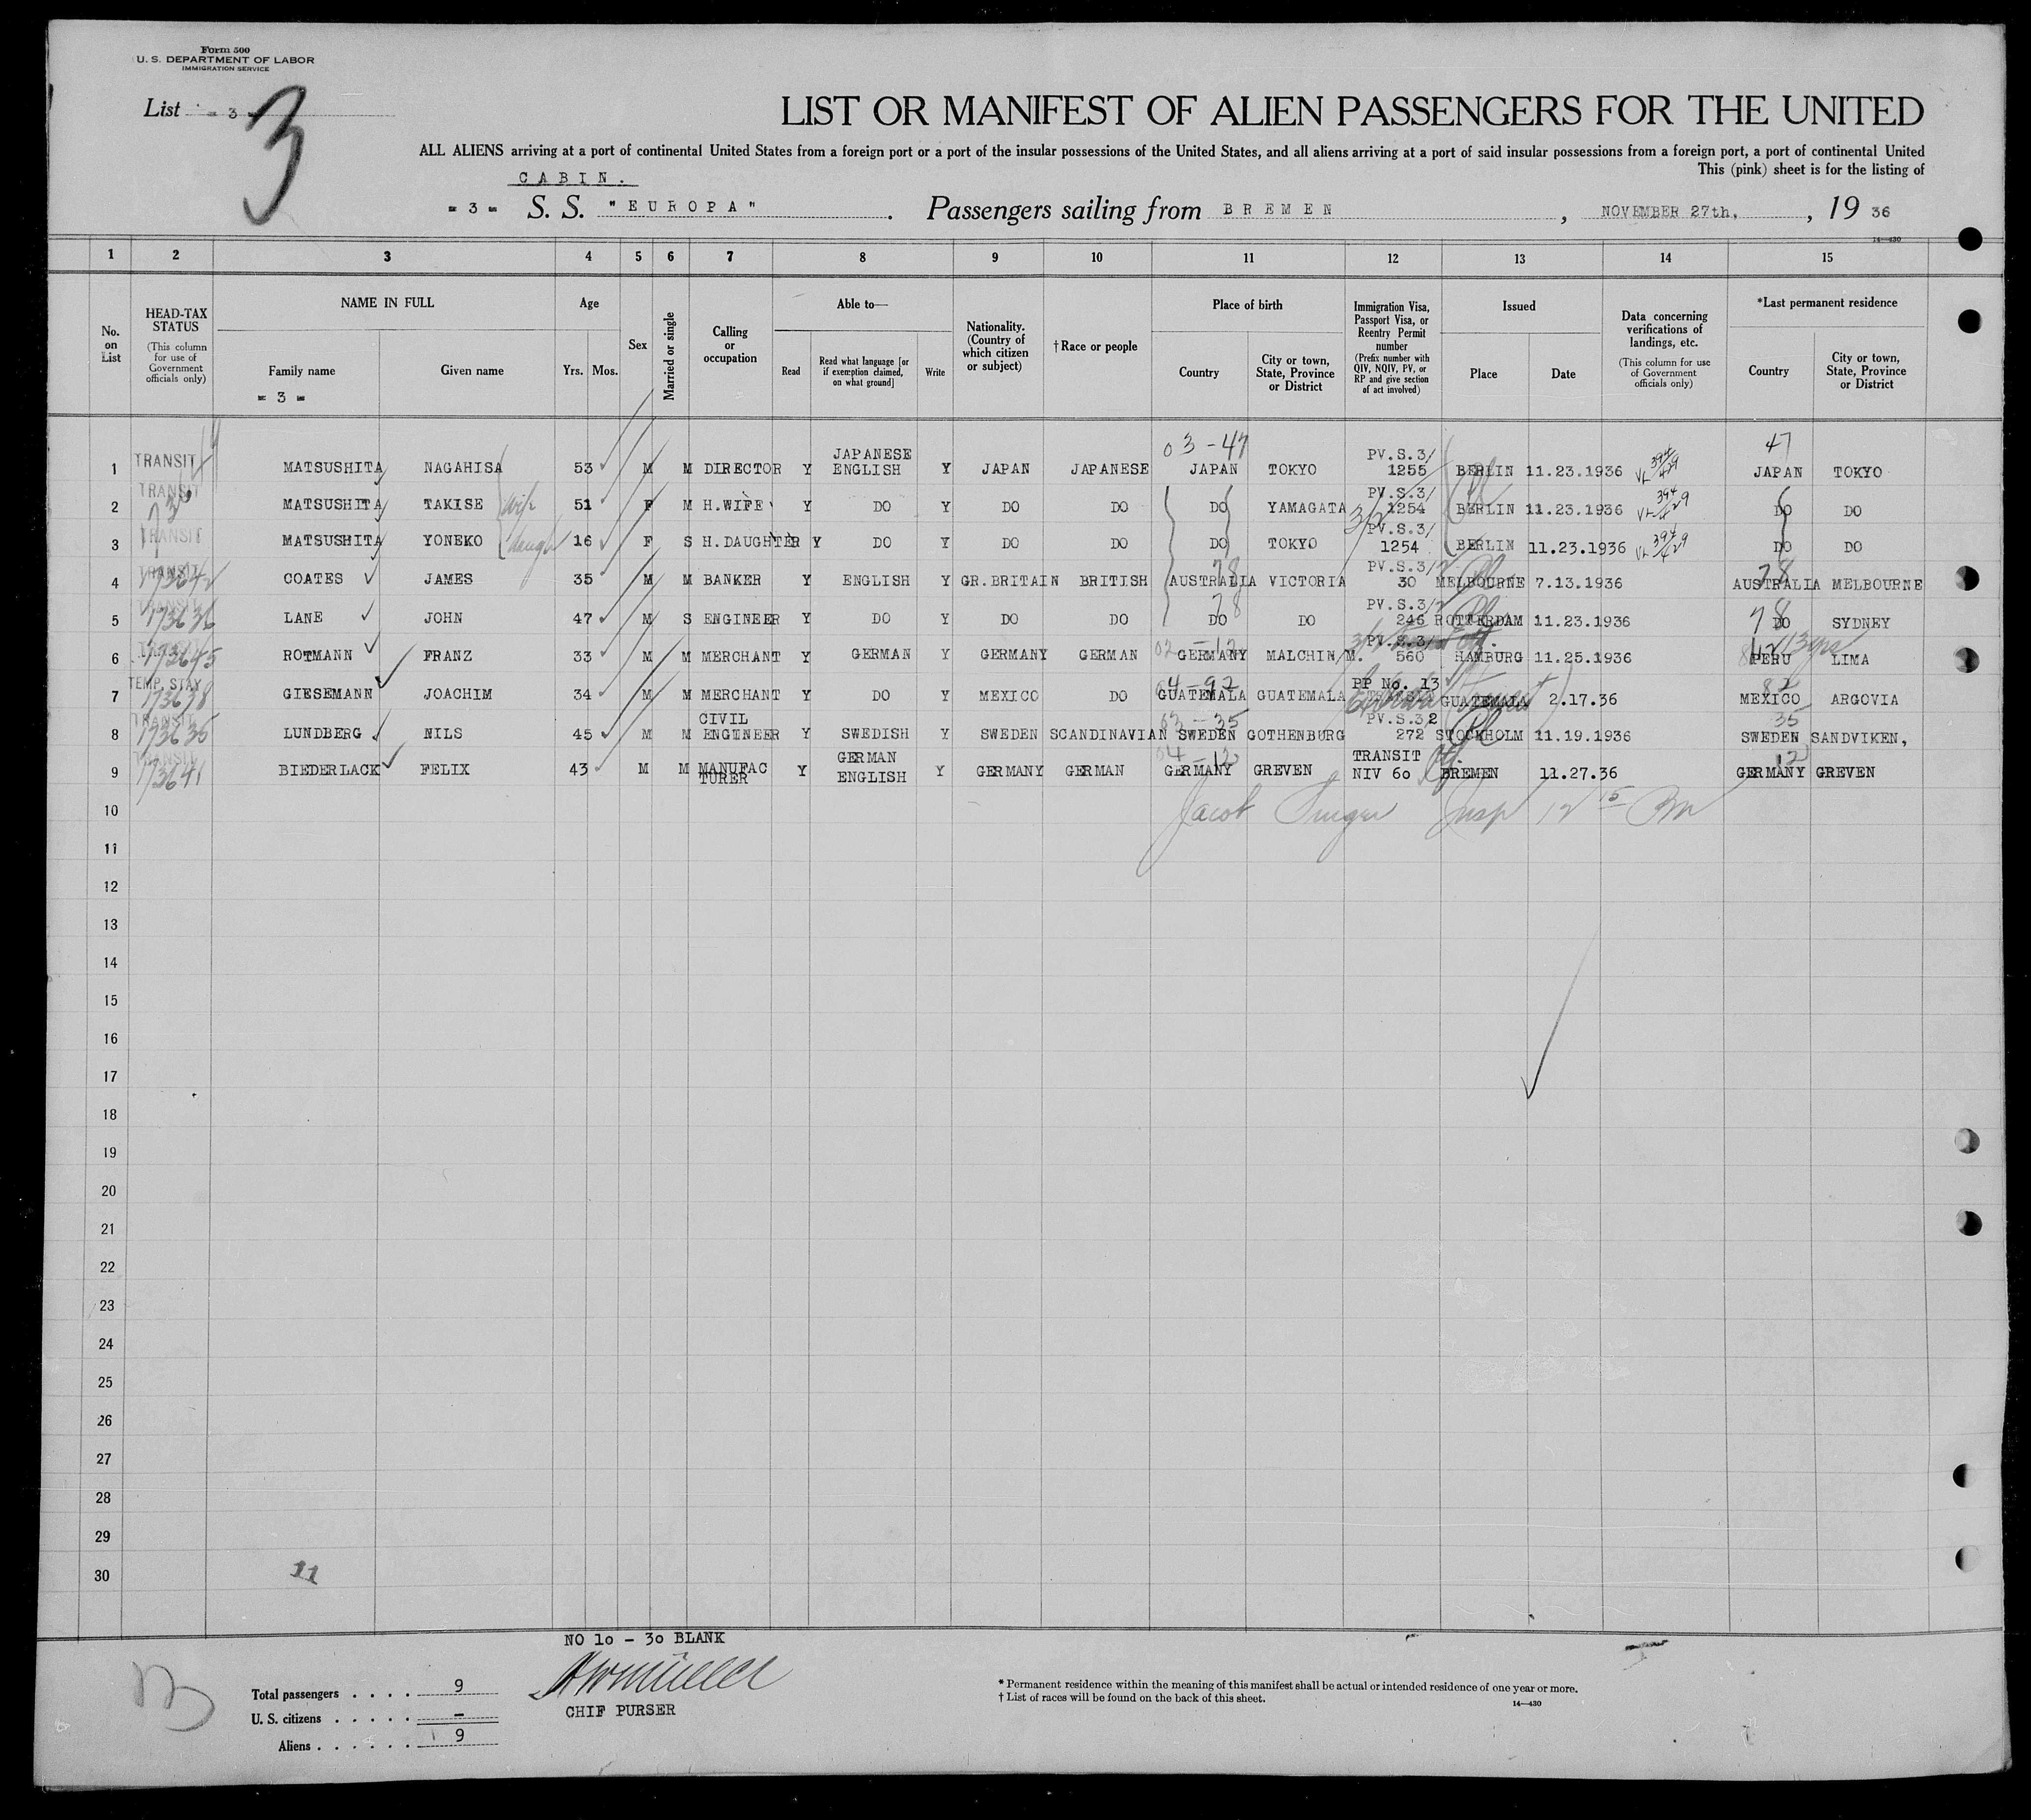 Form 500
U. S. DEPARTMENT OF LABOR
IMMIGRATION SERVICE
List - 3 -
3
LIST OR MANIFEST OF ALIEN PASSENGERS FOR THE UNITED
ALL ALIENS arriving at a port of continental United States from a foreign port or a port of the insular possessions of the United States, and all aliens arriving at a port of said insular possessions from a foreign port, a port of continental United
This (pink) sheet is for the listing of
CABIN.
- 3 - S. S. "EUROPA". Passengers sailing from BREMEN, NOVEMBER 27th, , 19 36
14—430
1 2 3 4 5 6 7 8 9 10 11 12 13 14 15
No. on List
HEAD-TAX STATUS
(This column for use of Government officials only)
NAME IN FULL
Family name
Given name
- 3 -
Age
Yrs. Mos.
Sex
Married or single
Calling or occupation
Able to—
Read
Read what language [or if exemption claimed, on what ground]
Write
Nationality. (Country of which citizen or subject)
†Race or people
Place of birth
Country
City or town, State, Province or District
Immigration Visa, Passport Visa, or Reentry Permit number
(Prefix number with QIV, NQIV, PV, or RP and give section of act involved)
Issued
Place
Date
Data concerning verifications of landings, etc.
(This column for use of Government officials only)
*Last permanent residence
Country
City or town, State, Province or District
03-47 47
1 TRANSIT MATSUSHITA NAGAHISA 53 M M DIRECTOR Y JAPANESE ENGLISH Y JAPAN JAPANESE JAPAN TOKYO PV.S.3/ 1255 BERLIN 11.23.1936 JAPAN TOKYO
2 TRANSIT MATSUSHITA TAKISE wife 51 F M H.WIFE Y DO Y DO DO DO YAMAGATA PV.S.3/ 1254 BERLIN 11.23.1936 DO DO
3 TRANSIT MATSUSHITA YONEKO 16 F S H.DAUGHTER Y DO Y DO DO DO TOKYO PV.S.3/ 1254 BERLIN 11.23.1936 DO DO
4 TRANSIT COATES JAMES 35 M M BANKER Y ENGLISH Y GR.BRITAIN BRITISH 78 AUSTRALIA VICTORIA PV.S.3/2 30 MELBOURNE 7.13.1936 78 AUSTRALIA MELBOURNE
5 173636 LANE JOHN 47 M S ENGINEER Y DO Y DO DO 78 DO DO PV.S.3/2 246 ROTTERDAM 11.23.1936 78 DO SYDNEY
6 173645 ROTMANN FRANZ 33 M M MERCHANT Y GERMAN Y GERMANY GERMAN 02-12 GERMANY MALCHIN/M. PV.S.3/ 560 HAMBURG 11.25.1936 PERU LIMA
7 TEMP. STAY GIESEMANN JOACHIM 34 M M MERCHANT Y DO Y MEXICO DO 04-92 GUATEMALA GUATEMALA PP No. 13 GUATEMALA 2.17.36 MEXICO ARGOVIA
8 TRANSIT 173635 LUNDBERG NILS 45 M M CIVIL ENGINEER Y SWEDISH Y SWEDEN SCANDINAVIAN 03-35 SWEDEN GOTHENBURG PV.S.32 272 STOCKHOLM 11.19.1936 35 SWEDEN SANDVIKEN,
9 TRANSIT 173641 BIEDERLACK FELIX 43 M M MANUFAC TURER Y GERMAN ENGLISH Y GERMANY GERMAN 04-12 GERMANY GREVEN TRANSIT NIV 60 BREMEN 11.27.36 12 GERMANY GREVEN
10 Jacob Insp 12 15 Pm
11
12
13
14
15
16
17
18
19
20
21
22
23
24
25
26
27
28
29
30
11
NO 10 - 30 BLANK
Total passengers . . . . 9
U. S. citizens . . . . . -
Aliens . . . . . . 9
CHIF PURSER
* Permanent residence within the meaning of this manifest shall be actual or intended residence of one year or more.
† List of races will be found on the back of this sheet.
14—430